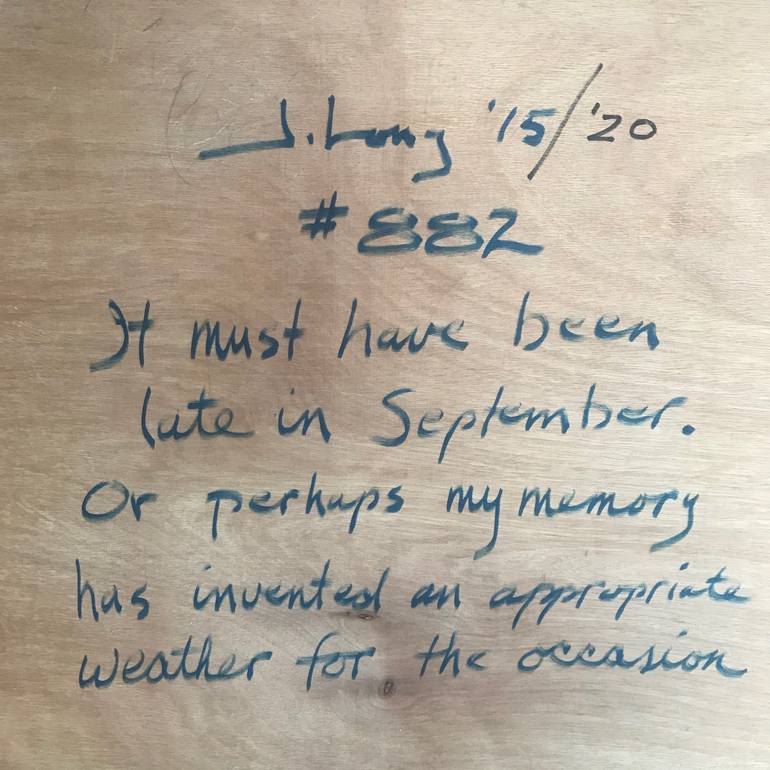 J. Long '15/'20
#882
It must have been
late in September.
Or perhaps my memory
has invented an appropriate
weather for the occasion